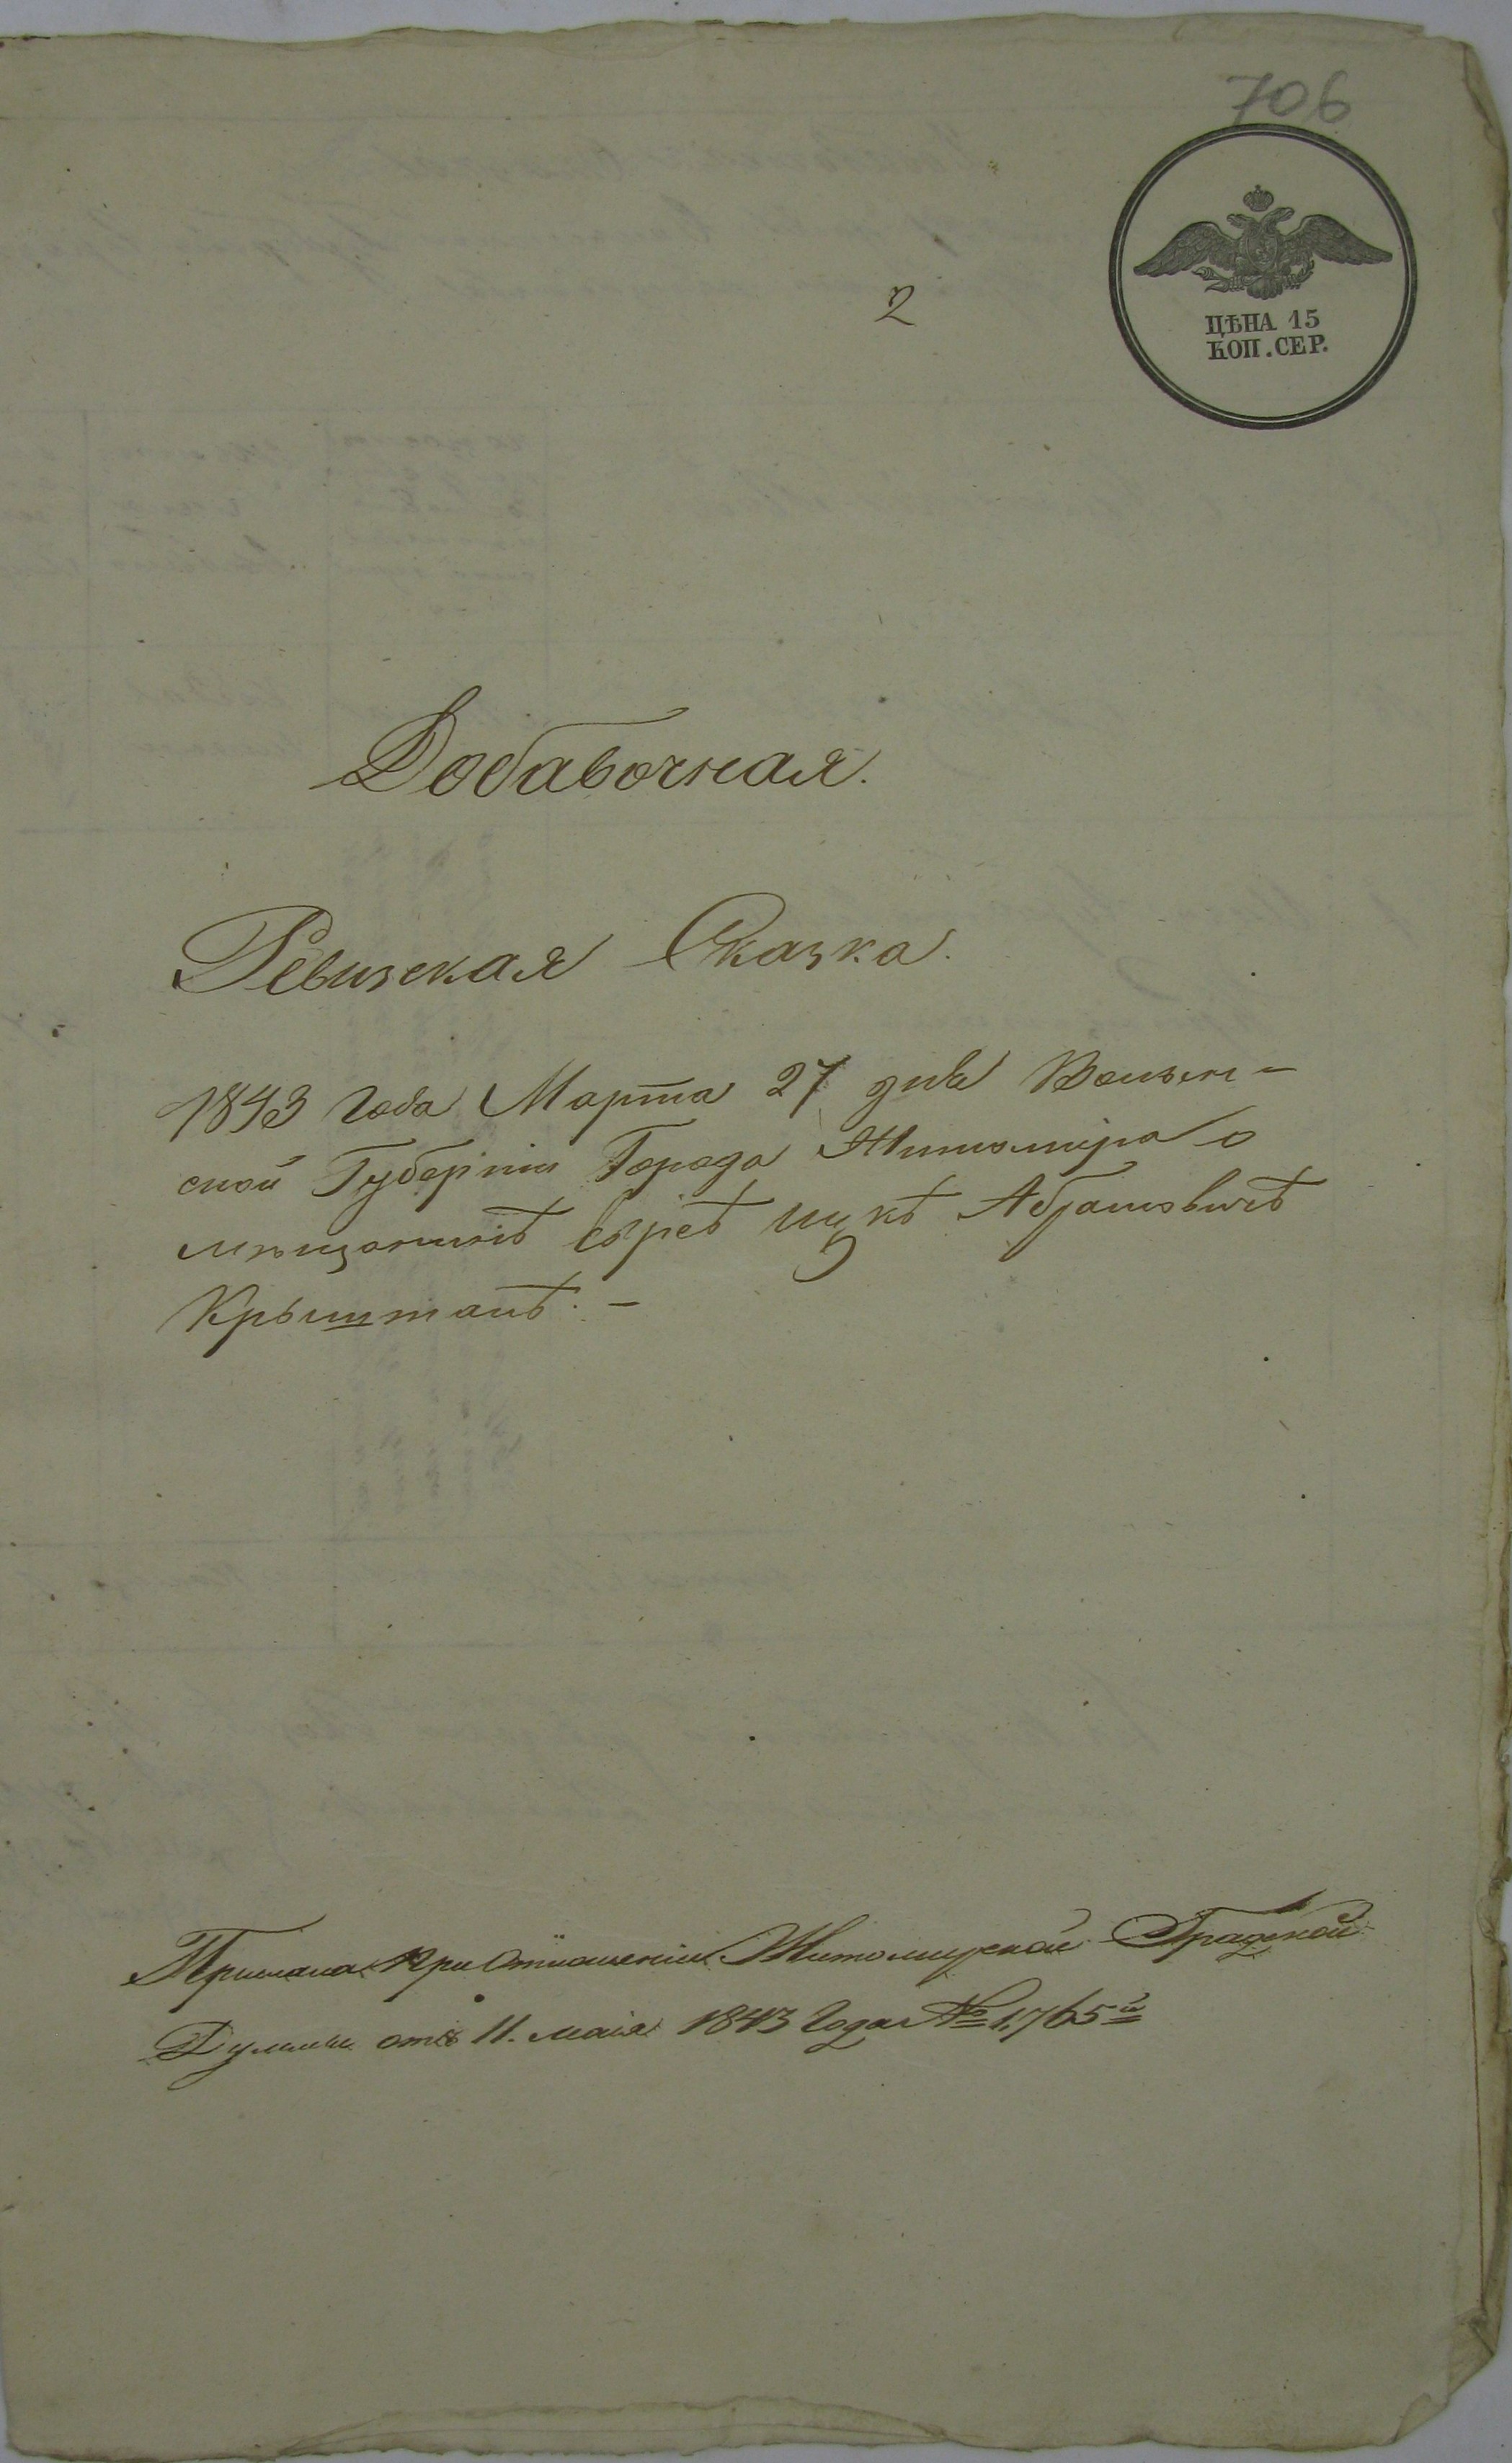 706
ЦѢНА 15
КОП. СЕР.
2
Добавочная.
Ревизская Сказка.
1843 Года Марта 27 дня Волын-
ской Губерніи Города Житоміра о
мѣщанинѣ Евреѣ Ицкѣ Абрамовичѣ
Крыштапѣ. -
Прислана при Отношеніи Житомирской Градской
Думы отъ 11. маія 1843 Года № 1,765й